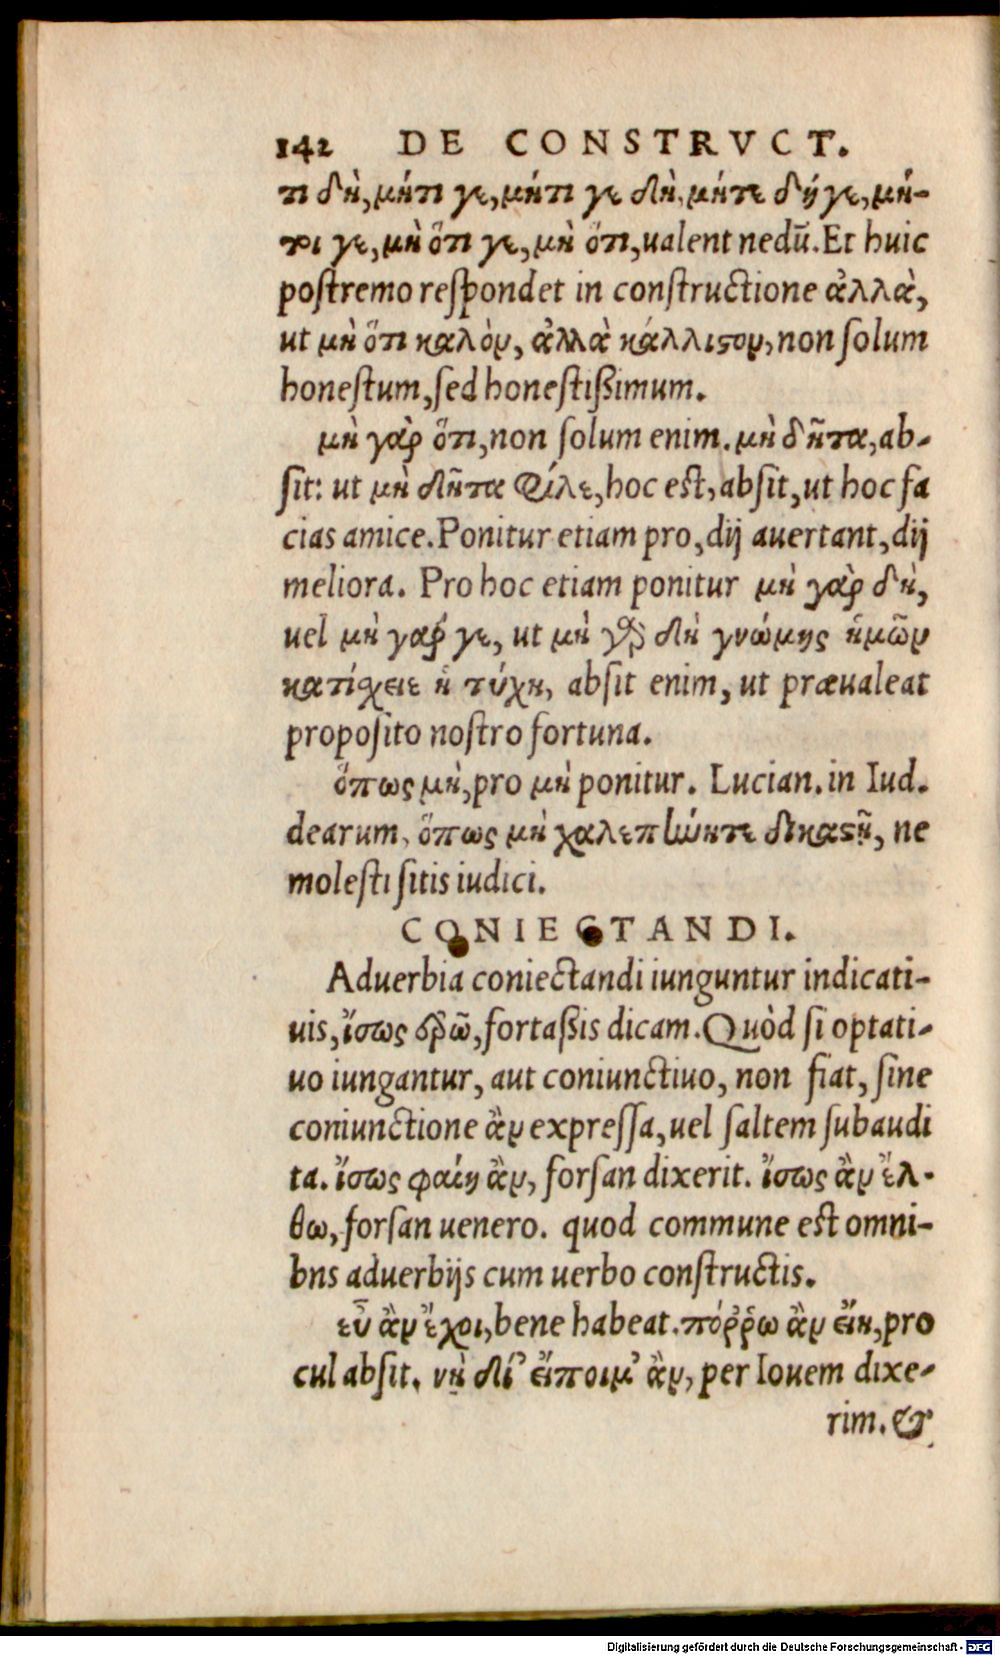 142 DE CONSTRVCT.
τι δὴ, μήτι γε, μήτι γε δὴ, μήτε δήγε, μή-
τοι γε, μὴ ὅτι γε, μὴ ὅτι, ualent nedū. Et huic
postremo respondet in constructione ἀλλὰ,
ut μὴ ὅτι καλὸν, ἀλλὰ κάλλιστον, non solum
honestum, sed honestißimum.
μὴ γὰρ ὅτι, non solum enim. μὴ δῆτα, ab-
sit: ut μὴ δῆτα φίλε, hoc est, absit, ut hoc fa
cias amice. Ponitur etiam pro, dij auertant, dij
meliora. Pro hoc etiam ponitur μὴ γὰρ δὴ,
uel μὴ γάρ γε, ut μὴ γὰρ δὴ γνώμης ἡμῶν
κατίσχειε ἡ τύχη, absit enim, ut præualeat
proposito nostro fortuna.
ὅπως μὴ, pro μὴ ponitur. Lucian. in Iud.
dearum, ὅπως μὴ χαλεπώητε δικαστῇ, ne
molesti sitis iudici.
CONIECTANDI.
Aduerbia coniectandi iunguntur indicati-
uis, ἴσως ἐρῶ, fortaßis dicam. Quòd si optati-
uo iungantur, aut coniunctiuo, non fiat, sine
coniunctione ἂν expressa, uel saltem subaudi
ta. ἴσως φαίη ἂν, forsan dixerit. ἴσως ἂν ἔλ-
θω, forsan uenero. quod commune est omni-
bns aduerbijs cum uerbo constructis.
εὖ ἂν ἔχοι, bene habeat. πόῤῥω ἂν εἴη, pro
cul absit. νὴ δί' εἴποιμ' ἂν, per Iouem dixe-
rim. &
Digitalisierung gefördert durch die Deutsche Forschungsgemeinschaft - DFG